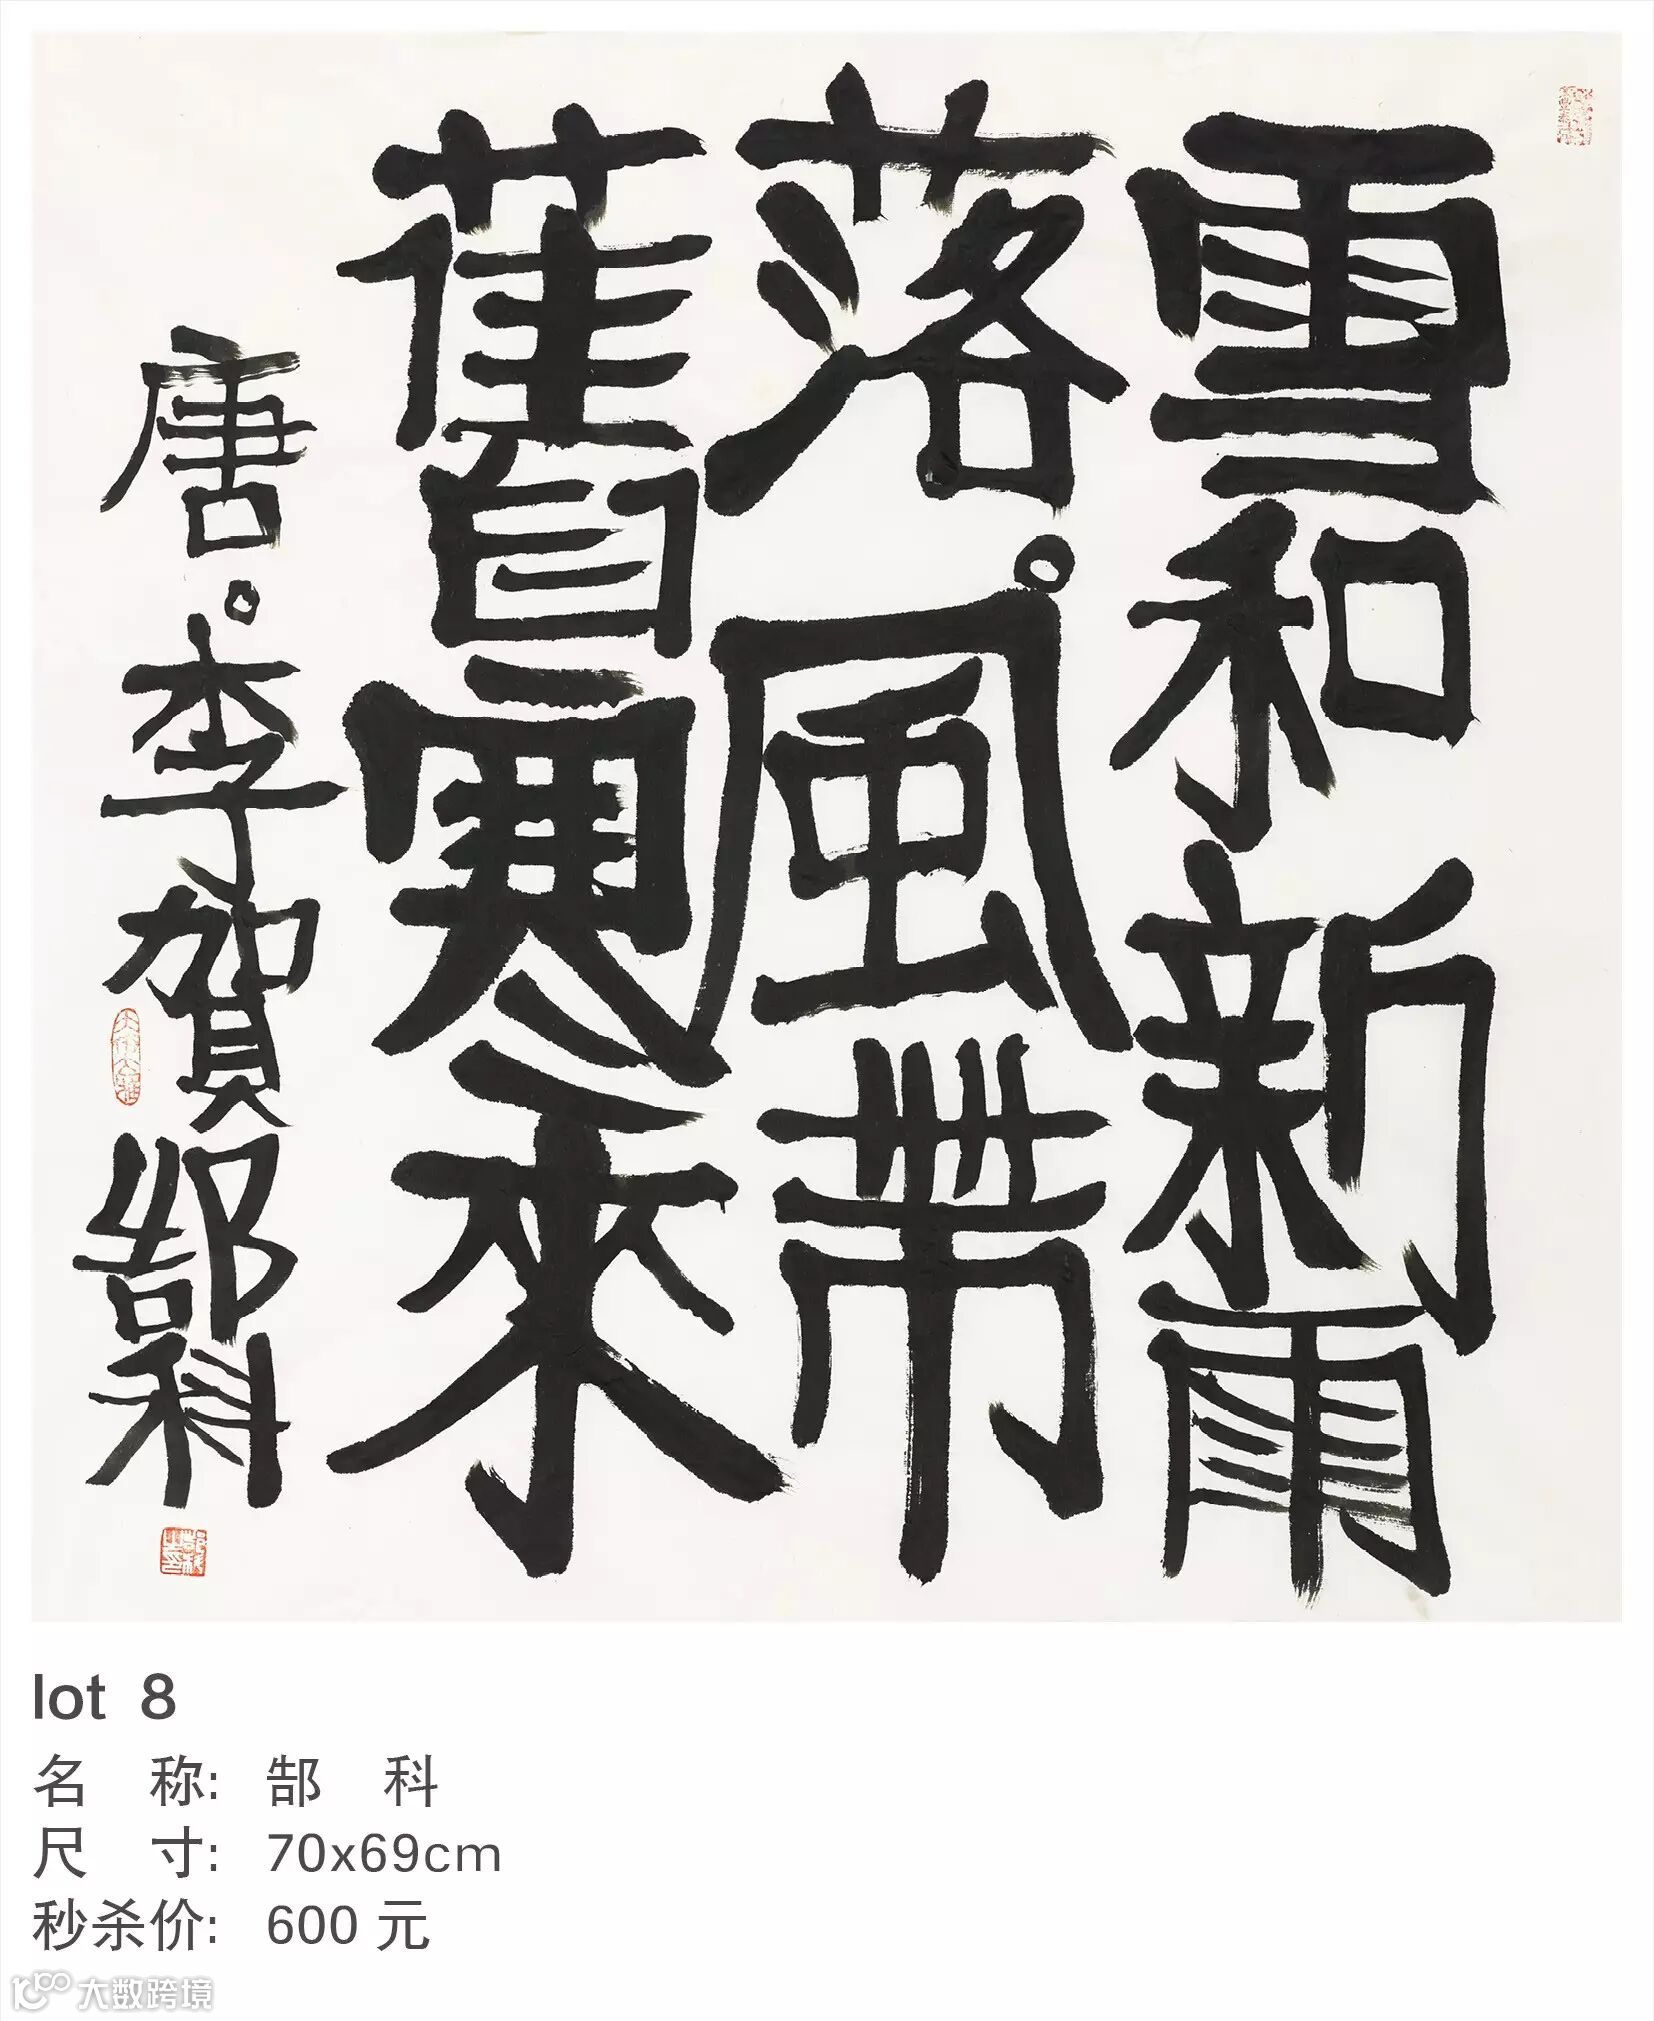 雪和新雨
落。風帶
舊寒來
唐。李賀 郜科
lot 8
名 称: 郜 科
尺 寸: 70x69cm
秒杀价: 600 元
大数跨境